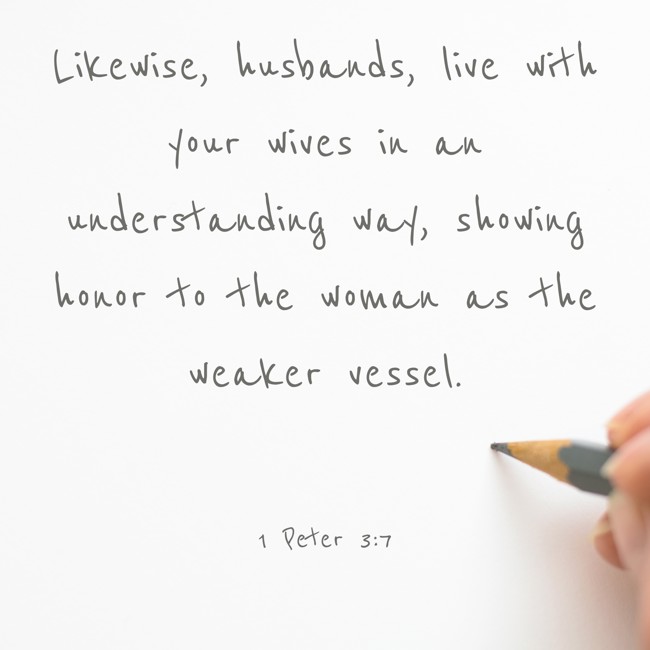 Likewise, husbands, live with
your wives in an
understanding way, showing
honor to the woman as the
weaker vessel.
1 Peter 3:7